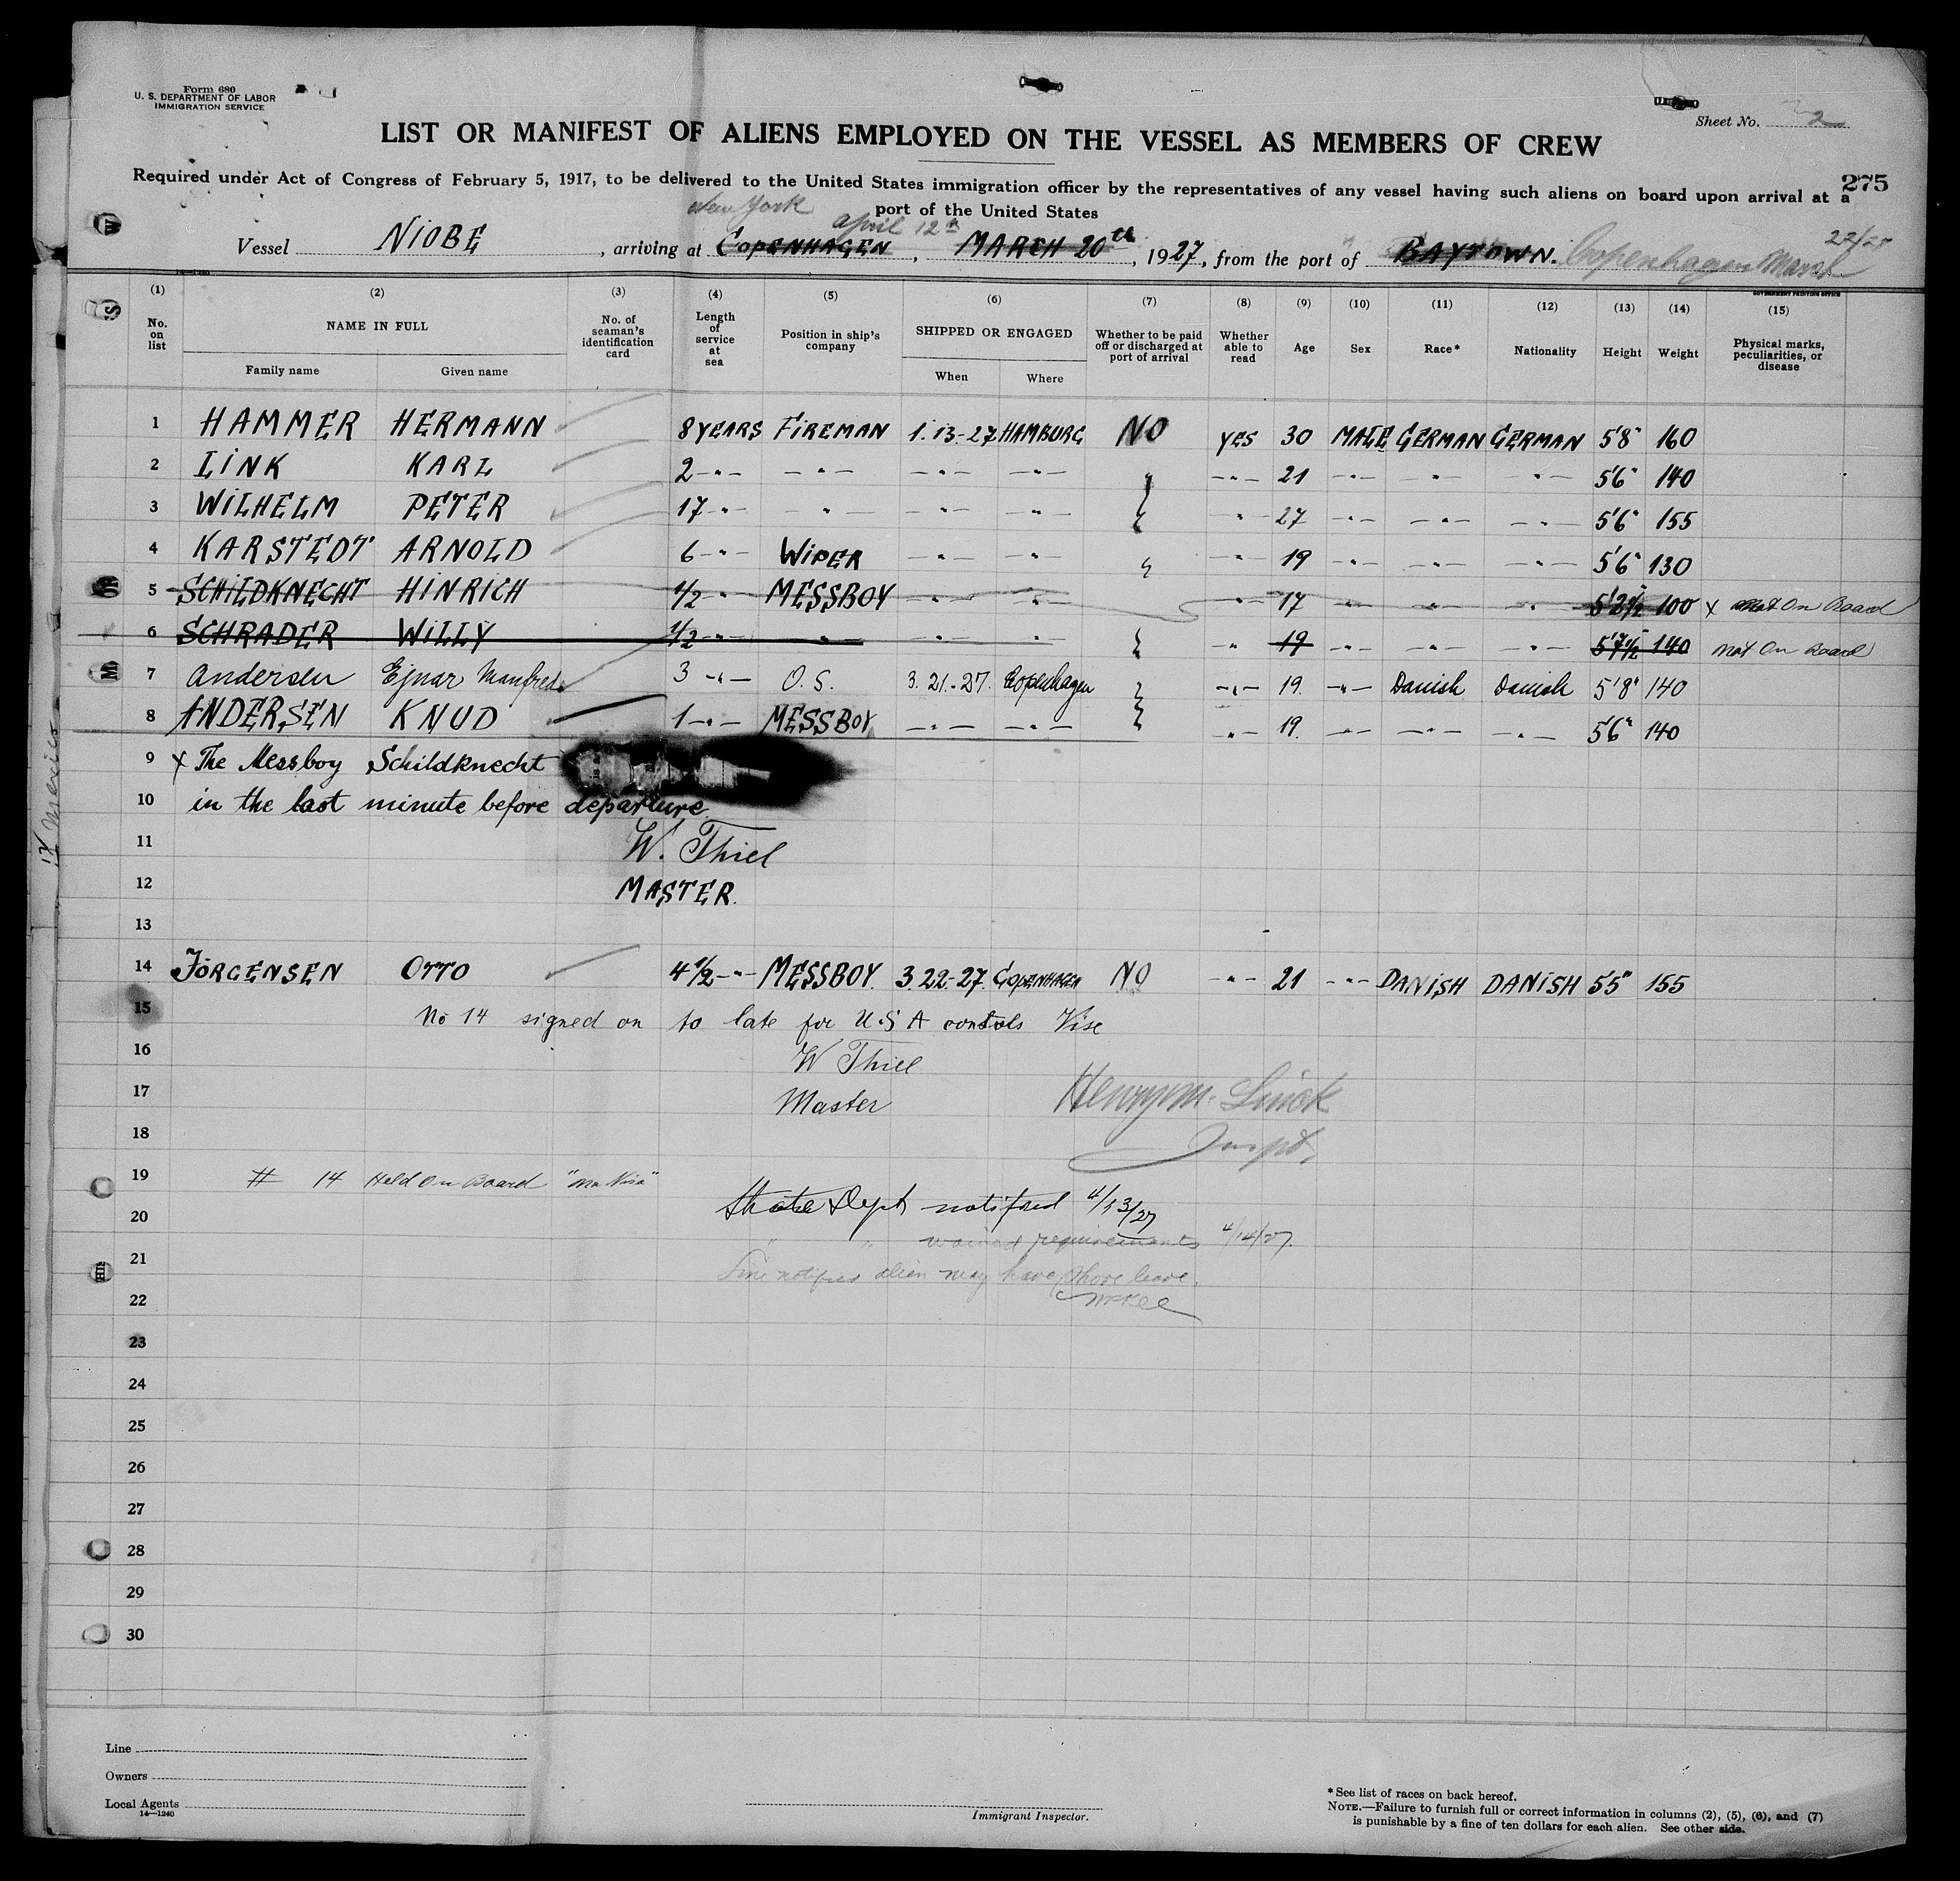 Form 680
U. S. DEPARTMENT OF LABOR
IMMIGRATION SERVICE
Sheet No. 2
LIST OR MANIFEST OF ALIENS EMPLOYED ON THE VESSEL AS MEMBERS OF CREW
275
Required under Act of Congress of February 5, 1917, to be delivered to the United States immigration officer by the representatives of any vessel having such aliens on board upon arrival at a
port of the United States
New York April 12th 22/27
Vessel NIOBE, arriving at COPENHAGEN, MARCH 20th, 1927, from the port of BAYTOWN. Copenhagen March
14-1240
GOVERNMENT PRINTING OFFICE
(1) (2) (3) (4) (5) (6) (7) (8) (9) (10) (11) (12) (13) (14) (15)
No. on list NAME IN FULL Family name Given name No. of seaman's identification card Length of service at sea Position in ship's company SHIPPED OR ENGAGED When Where Whether to be paid off or discharged at port of arrival Whether able to read Age Sex Race* Nationality Height Weight Physical marks, peculiarities, or disease
1 HAMMER HERMANN 8 YEARS FIREMAN 1.13-27 HAMBURG NO YES 30 MALE GERMAN GERMAN 5'8" 160
2 LINK KARL 2 -"- -"- -"- -"- " -"- 21 -"- -"- -"- 5'6" 140
3 WILHELM PETER 17 -"- -"- -"- -"- -"- 27 -"- -"- -"- 5'6" 155
4 KARSTEDT ARNOLD 6 -"- WIPER -"- -"- -"- 19 -"- -"- -"- 5'6" 130
5 SCHILDKNECHT HINRICH 1/2 -"- MESSBOY -"- -"- -"- 17 -"- -"- -"- 5'2½" 100 x Not On Board
6 SCHRADER WILLY 1/2 -"- " -"- " " 19 -"- -"- -"- 5'7½" 140 Not On Board
7 Andersen Ejnar Manfred 3 -"- O.S. 3.21.-27. Copenhagen -"- 19. -"- Danish Danish 5'8" 140
8 ANDERSEN KNUD 1 -"- MESSBOY -"- -"- -"- 19. -"- -"- -"- 5'6" 140
9 x The Messboy Schildknecht
10 in the last minute before departure.
11 W. Thiel
12 MASTER.
13
14 JÖRGENSEN OTTO 4½ -"- MESSBOY. 3.22-27. COPENHAGEN NO -"- 21 -"- DANISH DANISH 5'5" 155
15 No 14 signed on to late for U.S A consols Vise
16 W Thiel
17 Master Henry M. Linck
18 Inspt.
19 # 14 Held On Board "No Visa"
State Dept notified 4/13/27
20
" " waived requirements 4/14/27.
21 Line notified alien may have shore leave.
22 McKee
23
24
25
26
27
28
29
30
Line
Owners
Local Agents
14—1240
Immigrant Inspector.
* See list of races on back hereof.
NOTE.—Failure to furnish full or correct information in columns (2), (5), (6), and (7)
is punishable by a fine of ten dollars for each alien. See other side.